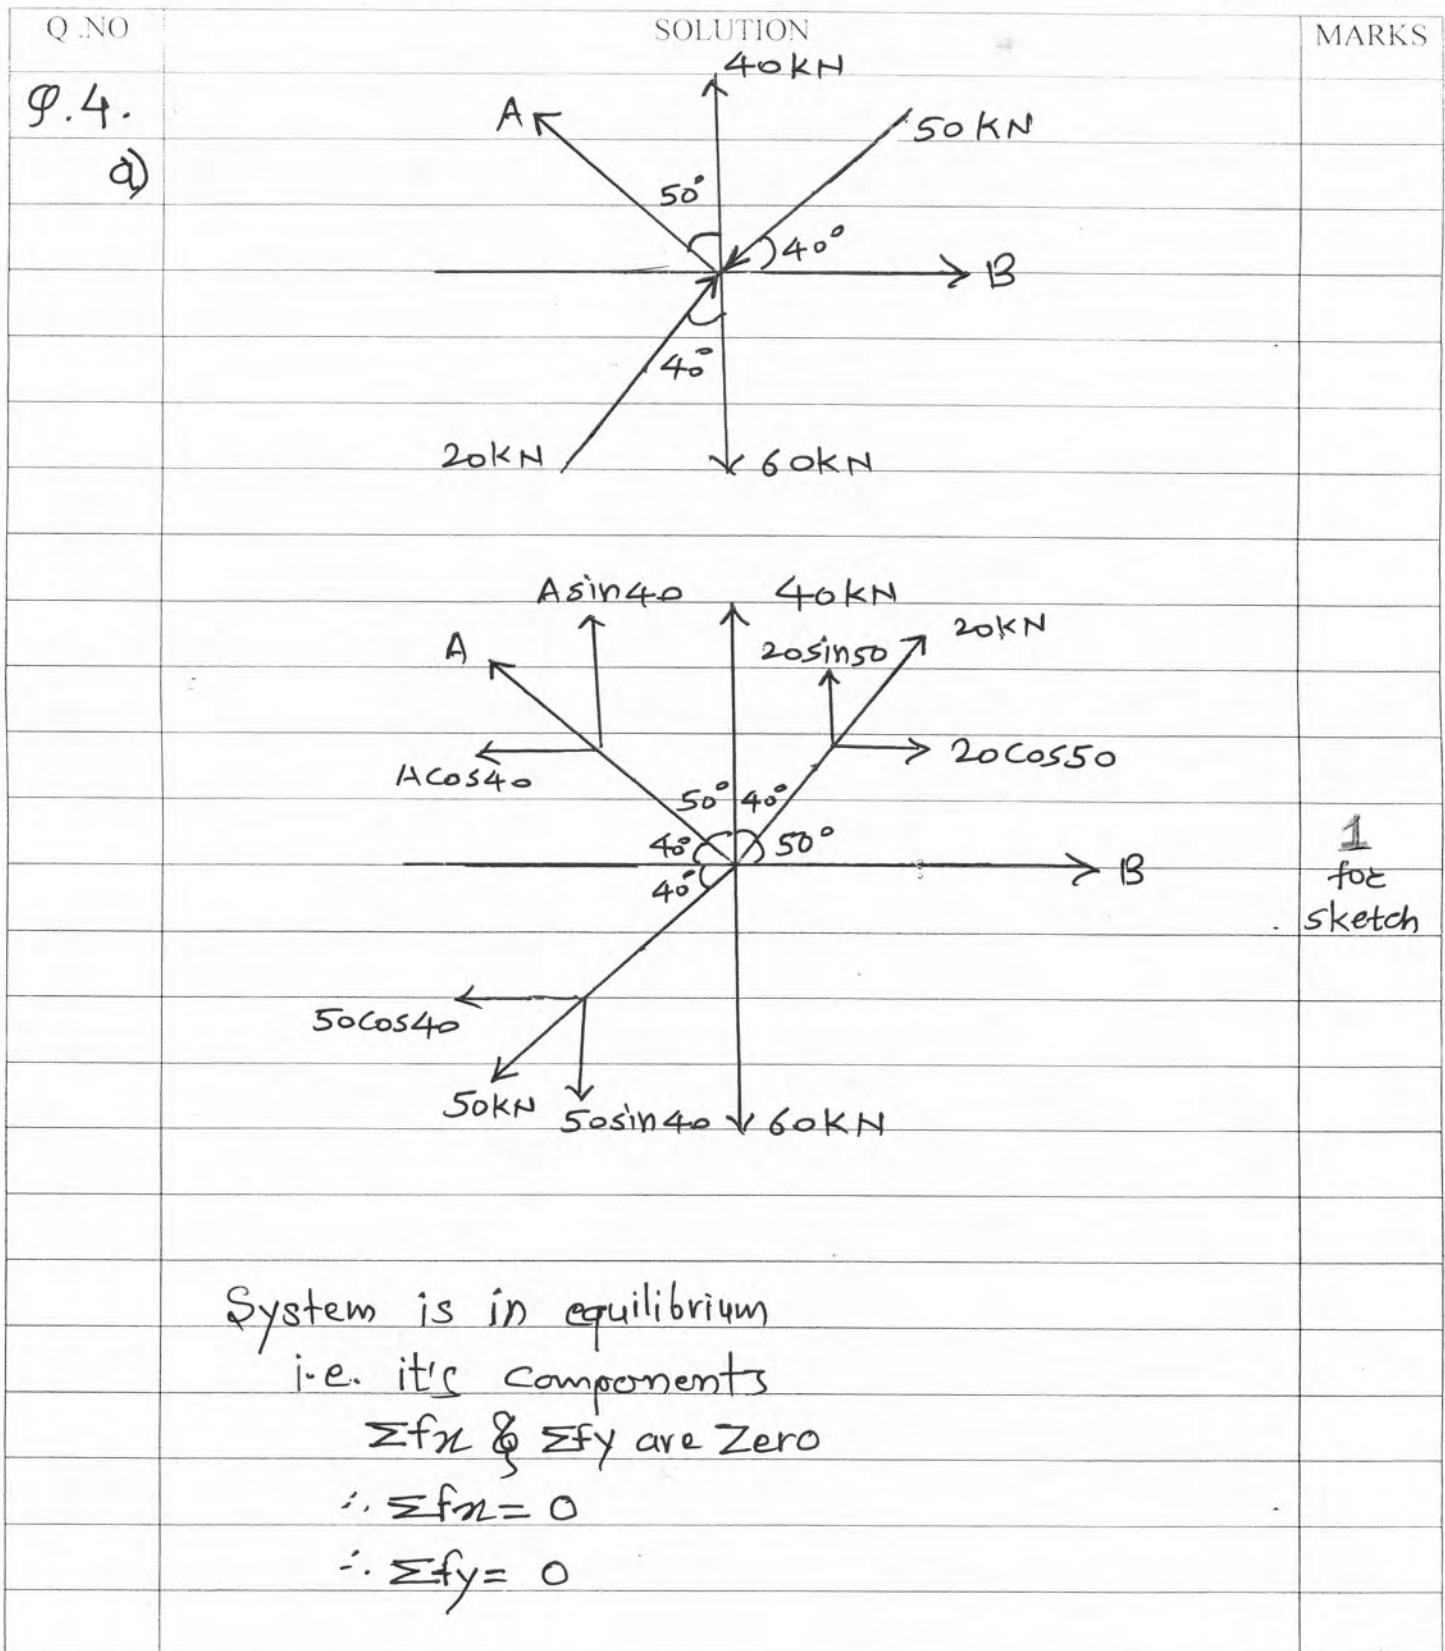 Q.NO SOLUTION MARKS
Q.4.
a)
40kN
A
50KN
50°
40°
B
40°
20kN
60kN
Asin40
40kN
20kN
A
20sin50
Acos40
20cos50
50° 40°
40° 50°
B
40°
1
for
sketch
50cos40
50kN
50sin40
60KN
System is in equilibrium
i.e. it's components
Σfx & Σfy are Zero
∴ Σfx = 0
∴ Σfy = 0